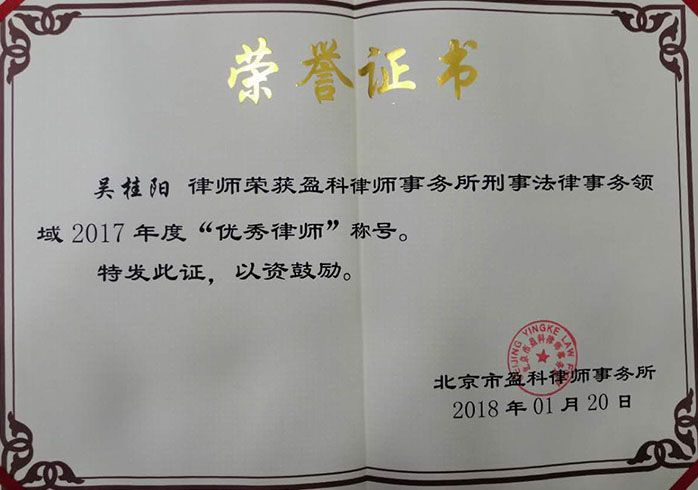 荣誉证书
吴桂阳 律师荣获盈科律师事务所刑事法律事务领
域 2017 年度“优秀律师”称号。
特发此证，以资鼓励。
BEIJING YINGKE LAW FIRM
北京市盈科律师事务所
北京市盈科律师事务所
2018 年 01 月 20 日